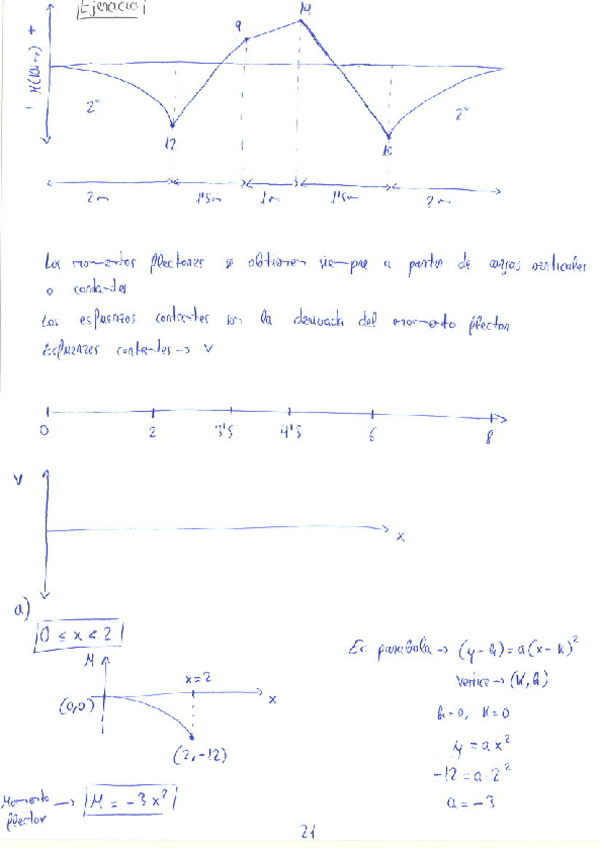 Ejercicio
M(kN·m) +
9
14
2°
2°
12
2m
1'5m
1m
1'5m
2m
Los momentos flectores se obtienen siempre a partir de cargas verticales
o cortantes
Los esfuerzos cortantes son la derivada del momento flector
Esfuerzos cortantes → V
0 2 3'5 4'5 6 8
V
x
a)
0 ≤ x ≤ 2
M
x=2
x
(0,0)
(2,-12)
Momento flector → M = -3x²
Ec parábola → (y-h)=a(x-k)²
Vertice → (k,h)
h=0, k=0
y = ax²
-12 = a·2²
a = -3
21